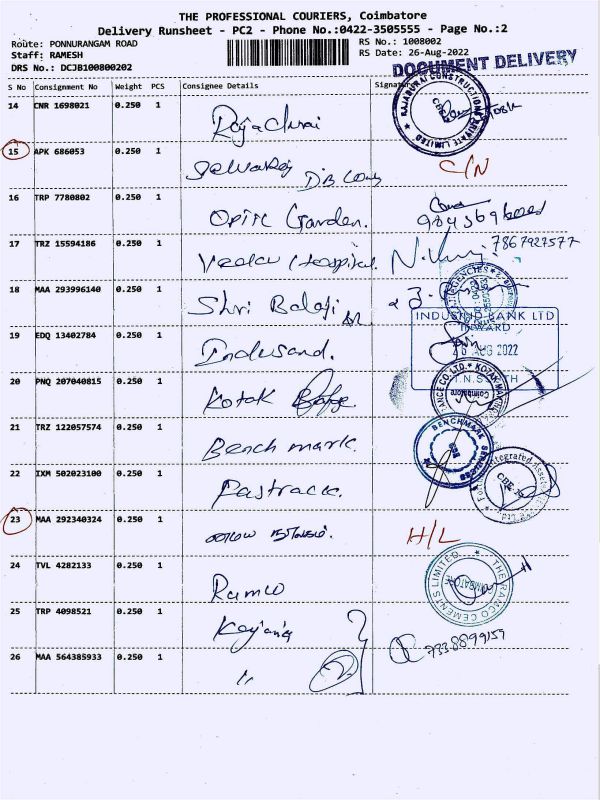 THE PROFESSIONAL COURIERS, Coimbatore
Delivery Runsheet - PC2 - Phone No.:0422-3505555 - Page No.:2
Route: PONNURANGAM ROAD
Staff: RAMESH
DRS No.: DCJB100800202
RS No.: 1008002
RS Date: 26-Aug-2022
DOCUMENT DELIVERY
S No Consignment No Weight PCS Consignee Details Signature
14 CNR 1698021 0.250 1 Raja Durai
RAJADURAI CONSTRUCTIONS PRIVATE LIMITED
15 APK 686053 0.250 1 Selvaraj C/N
16 TRP 7780802 0.250 1 Optic Garden.
17 TRZ 15594186 0.250 1 Vedav Hospital. 7867927577
18 MAA 293996140 0.250 1 Shri Balaji
INDUSIND BANK LTD
INWARD
26 AUG 2022
19 EDQ 13402784 0.250 1 Indusand.
20 PNQ 207040815 0.250 1 Kotak
21 TRZ 122057574 0.250 1 Bench mark.
BENCHMARK SERVICES
22 IXM 502023100 0.250 1 Pastrack.
23 MAA 292340324 0.250 1 H/L
24 TVL 4282133 0.250 1 Ramco
THE RAMCO CEMENTS LIMITED
COIMBATORE
25 TRP 4098521 0.250 1
7338899159
26 MAA 564385933 0.250 1 "